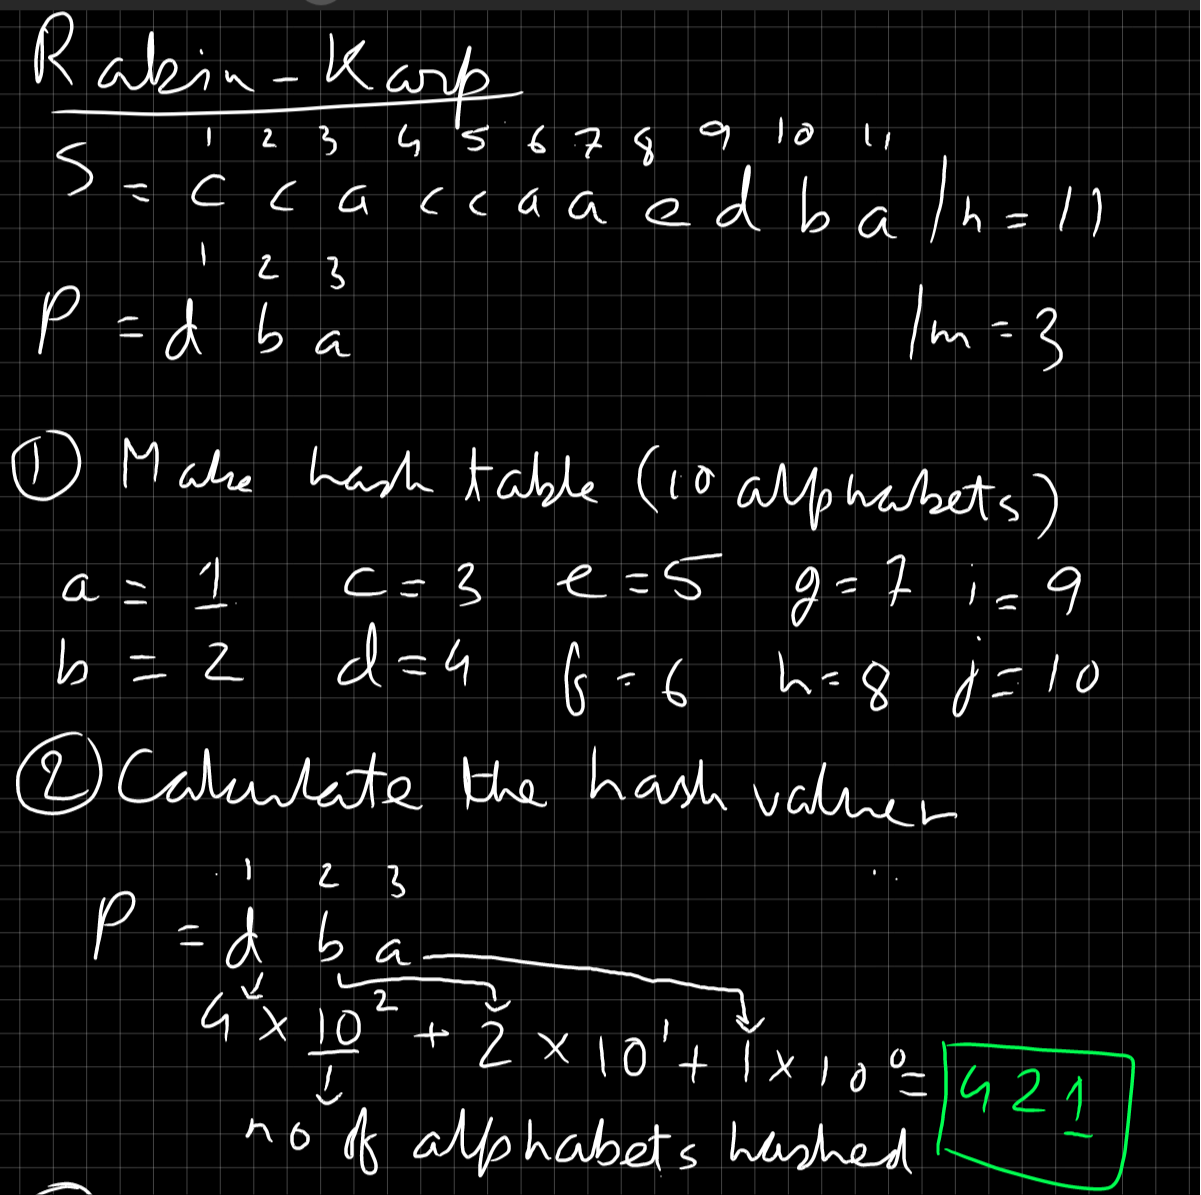 Rabin-Karp
1 2 3 4 5 6 7 8 9 10 11
S = c c a c c a a e d b a / n = 11
1 2 3
P = d b a / m = 3
① Make hash table (10 alphabets)
a = 1 c = 3 e = 5 g = 7 i = 9
b = 2 d = 4 f = 6 h = 8 j = 10
② Calculate the hash values
1 2 3
P = d b a
4 × 10² + 2 × 10¹ + 1 × 10⁰ = 421
no of alphabets hashed